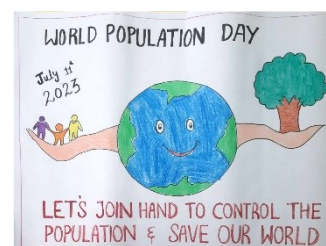 WORLD POPULATION DAY
July 11th
2023
LET'S JOIN HAND TO CONTROL THE
POPULATION & SAVE OUR WORLD